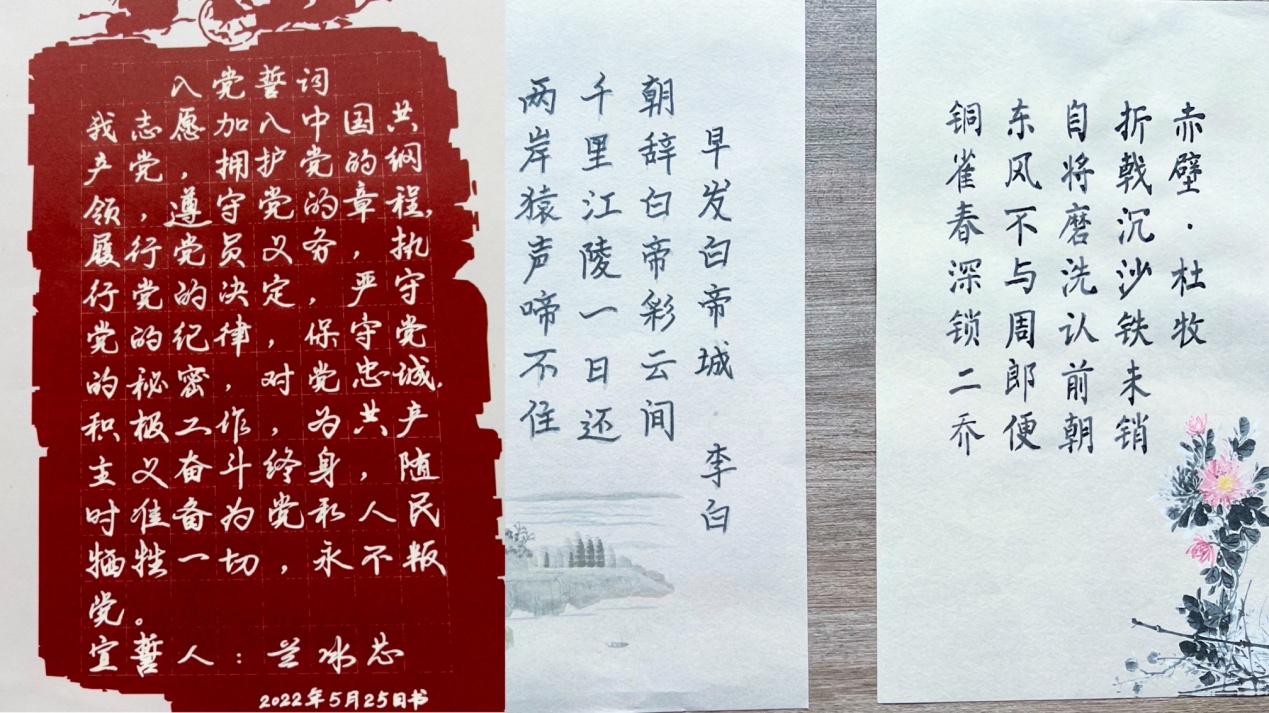 入党誓词
我志愿加入中国共
产党，拥护党的纲
领，遵守党的章程，
履行党员义务，执
行党的决定，严守
党的纪律，保守党
的秘密，对党忠诚，
积极工作，为共产
主义奋斗终身，随
时准备为党和人民
牺牲一切，永不叛
党。
宣誓人：兰冰芯
2022年5月25日书
早发白帝城 李白
朝辞白帝彩云间
千里江陵一日还
两岸猿声啼不住
赤壁·杜牧
折戟沉沙铁未销
自将磨洗认前朝
东风不与周郎便
铜雀春深锁二乔